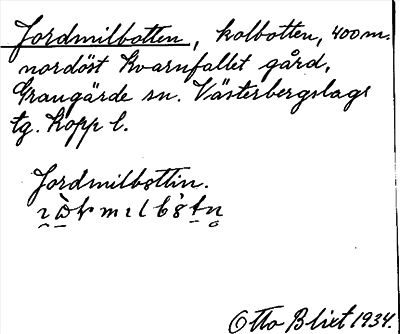 Jordmilbotten, kolbotten, 400 m.
nordöst Kvarnfallet gård,
Grangärde sn. Västerbergslags
tg. Kopp l.
Jordmilbottin.
Otto Blixt 1934.